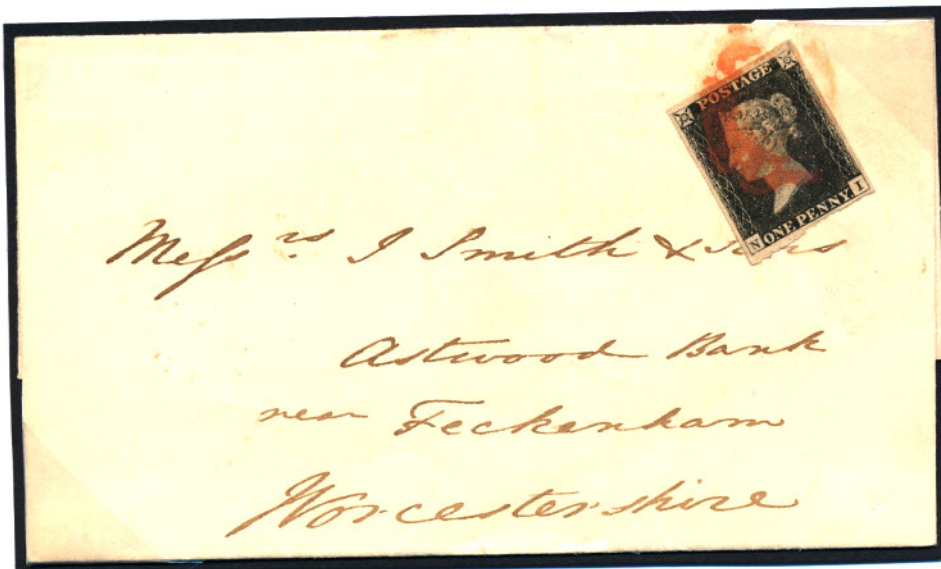 POSTAGE
N ONE PENNY I
Messrs J Smith & Sons
Astwood Bank
near Feckenham
Worcestershire